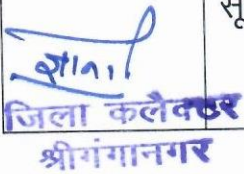 सू
ज्ञाना
जिला कलैक्टर
श्रीगंगानगर